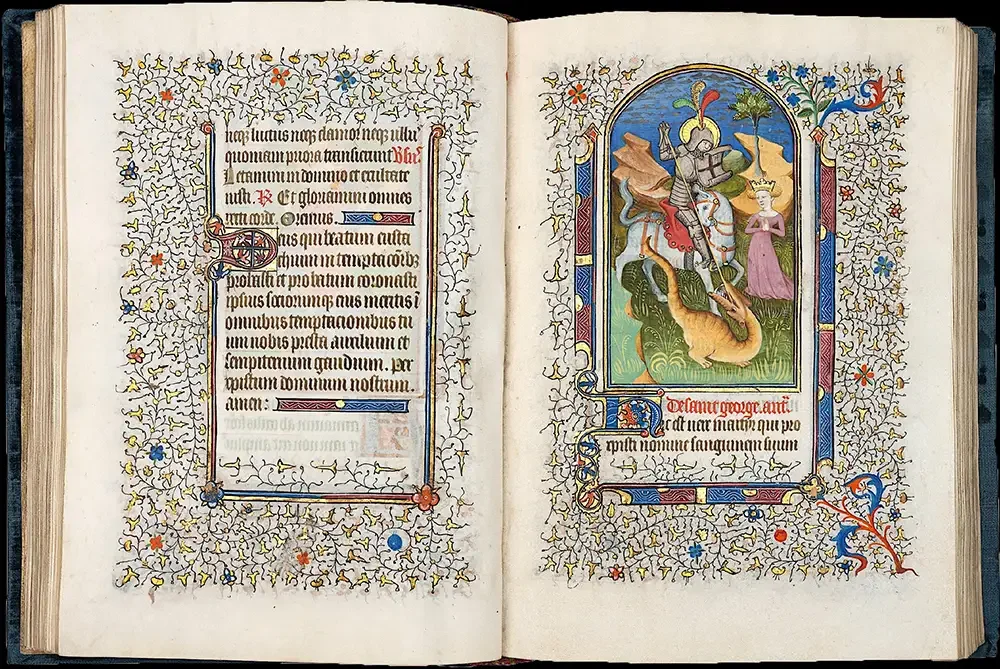 neqꝫ luctus neqꝫ clamor neqꝫ ullu
quoniam priora transierunt
Letamini in domino et exultate
iusti. R Et gloriamini omnes
recti corde. Oremus.
Deus qui beatum eusta
chium in temptacōibꝫ
probasti et probatum coronasti
ipsius sociorumqꝫ eius meritis ī
omnibus temptacionibus tu
um nobis presta auxilium et
sempiternum gaudium. Per
xpistum dominum nostrum.
amen:
De saint george. ant
Hic est vere martyr qui pro
xpisti nomine sanguinem suum